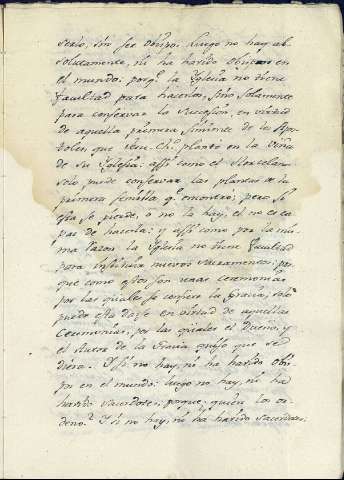 serlo, sin ser Obispo. Luego no hay ab-
solutamente, ni ha havido Obispos en
el mundo: porq.e la Iglesia no tiene
facultad para hacerlos, sino solamente
para conservar la succesion, en virtud
de aquella primera simiente de los Apos-
toles, que Ch.to plantó en la Viña
de su Iglesia: assi como el Hortelano
solo puede conservar las plantas de la
primera semilla q.e encontró; pero si
esta se pierde, o no la hay, el no es ca-
paz de hacerla: y assi como por la mis-
ma razon la Iglesia no tiene facultad
para instituir nuevos Sacramentos; por-
que como estos son unas ceremonias
por las quales se confiere la gracia, solo
puede esta darse en virtud de aquellas
ceremonias, por las quales el Dueño, y
el Autor de la Gracia quiso que se
diera. Y si no hay, ni ha havido Obis-
pos en el mundo: luego no hay, ni ha
havido Sacerdotes; porque: quién los or-
denó? Y si no hay, ni ha havido Sacerdotes: